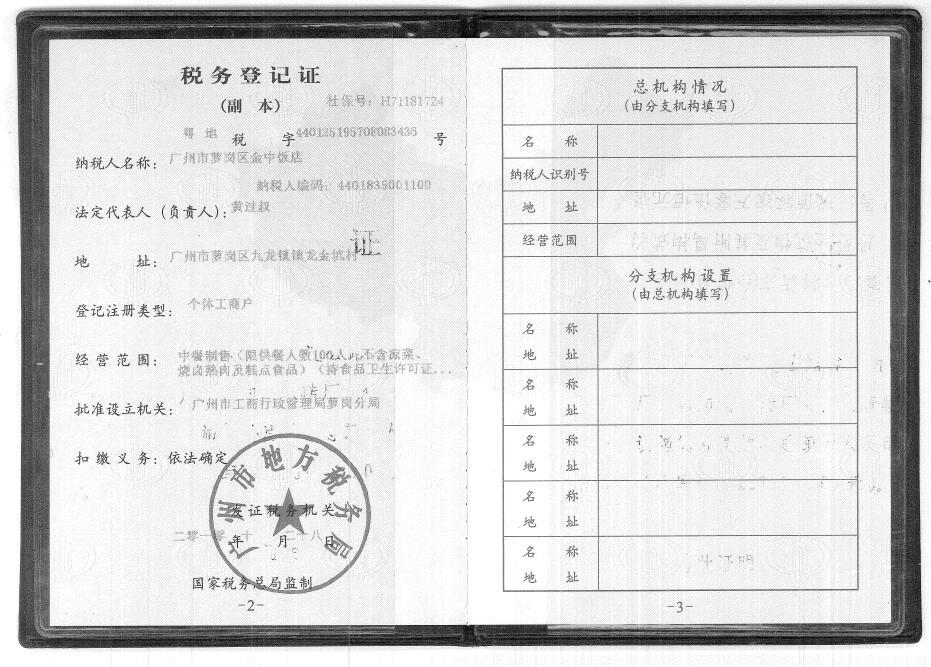 税务登记证
（副 本）
社保号：H71181724
粤 地 税 字 440125195708083435 号
纳税人名称：广州市萝岗区金中饭店
纳税人编码：4401835001100
法定代表人（负责人）：黄过叔
证
地 址：广州市萝岗区九龙镇镇龙金坑村
登记注册类型：个体工商户
经营范围：中餐制售（限供餐人数100人，不含凉菜、
烧卤熟肉及糕点食品）（持食品卫生许可证...
批准设立机关：广州市工商行政管理局萝岗分局
扣缴义务：依法确定
广州市地方税务局
发证税务机关
二零一零年 十 月 二十八 日
国家税务总局监制
-2-
总机构情况
（由分支机构填写）
名 称
纳税人识别号
地 址
经营范围
分支机构设置
（由总机构填写）
名 称
地 址
名 称
地 址
名 称
地 址
名 称
地 址
名 称
地 址
-3-